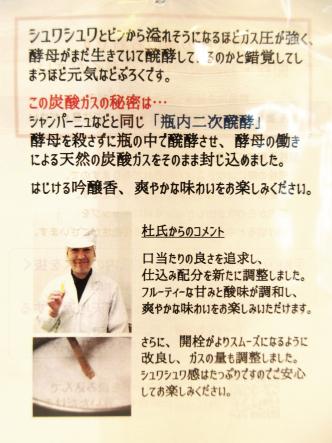 シュワシュワとビンから溢れそうになるほどガス圧が強く、
酵母がまだ生きていて醗酵して、るのかと錯覚してし
まうほど元気などぶろくです。
この炭酸ガスの秘密は…
シャンパーニュなどと同じ「瓶内二次醗酵」
酵母を殺さずに瓶の中で醗酵させ、酵母の働き
による天然の炭酸ガスをそのまま封じ込めました。
はじける吟醸香、爽やかな味わいをお楽しみください。
杜氏からのコメント
口当たりの良さを追求し、
仕込み配分を新たに調整しました。
フルーティーな甘みと酸味が調和し、
爽やかな味わいをお楽しみいただけます。
さらに、開栓がよりスムーズになるように
改良し、ガスの量も調整しました。
シュワシュワ感はたっぷりですのでご安心
してお楽しみください。